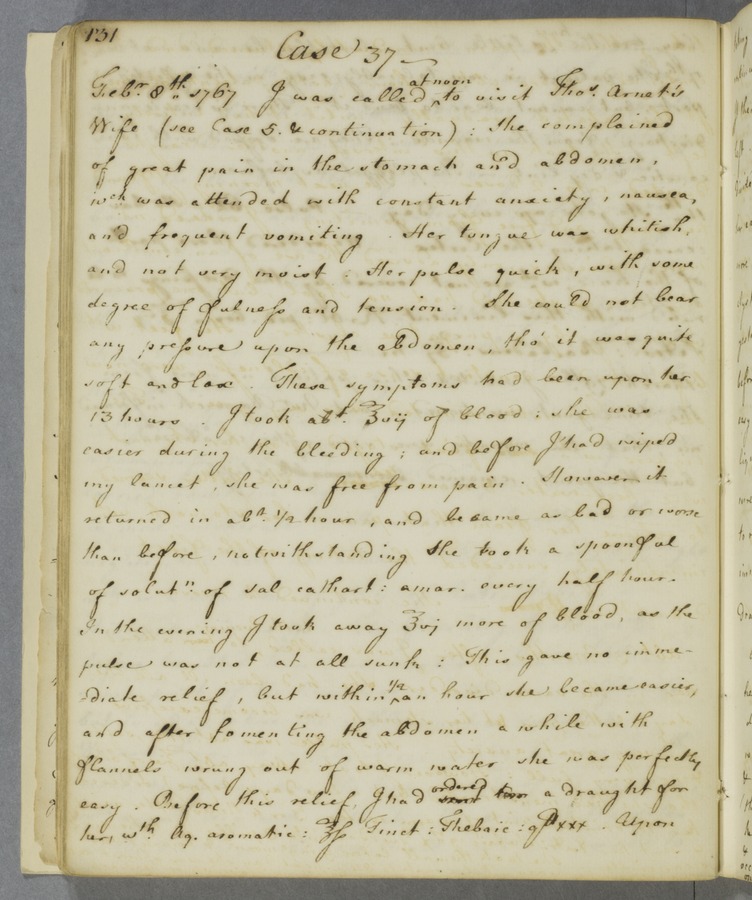 131
Case 37
Febr. 8th 1767 I was called at noon to visit Thos. Arnet's
Wife (see Case 5. & continuation): She complained
of great pain in the stomach and abdomen,
wch was attended with constant anxiety, nausea,
and frequent vomiting. Her tongue was whitish,
and not very moist: Her pulse quick, with some
degree of fulness and tension. She could not bear
any pressure upon the abdomen, tho' it was quite
soft and lax. These symptoms had been upon her
13 hours. I took abt. ℥vij of blood: she was
easier during the bleeding; and before I had wiped
my lancet, she was free from pain. However it
returned in abt. 1/2 hour, and became as bad or worse
than before, notwithstanding she took a spoonful
of solutn. of sal cathart: amar. every half hour.
In the evening I took away ℥vj more of blood, as the
pulse was not at all sunk: This gave no imme-
-diate relief, but within 1/2 an hour she became easier,
and after fomenting the abdomen a while with
flannels wrung out of warm water she was perfectly
easy. Before this relief, I had ordered a draught for
her, wth Aq. aromatic: ℥ss Tinct: Thebaic: gtt xxx. Upon